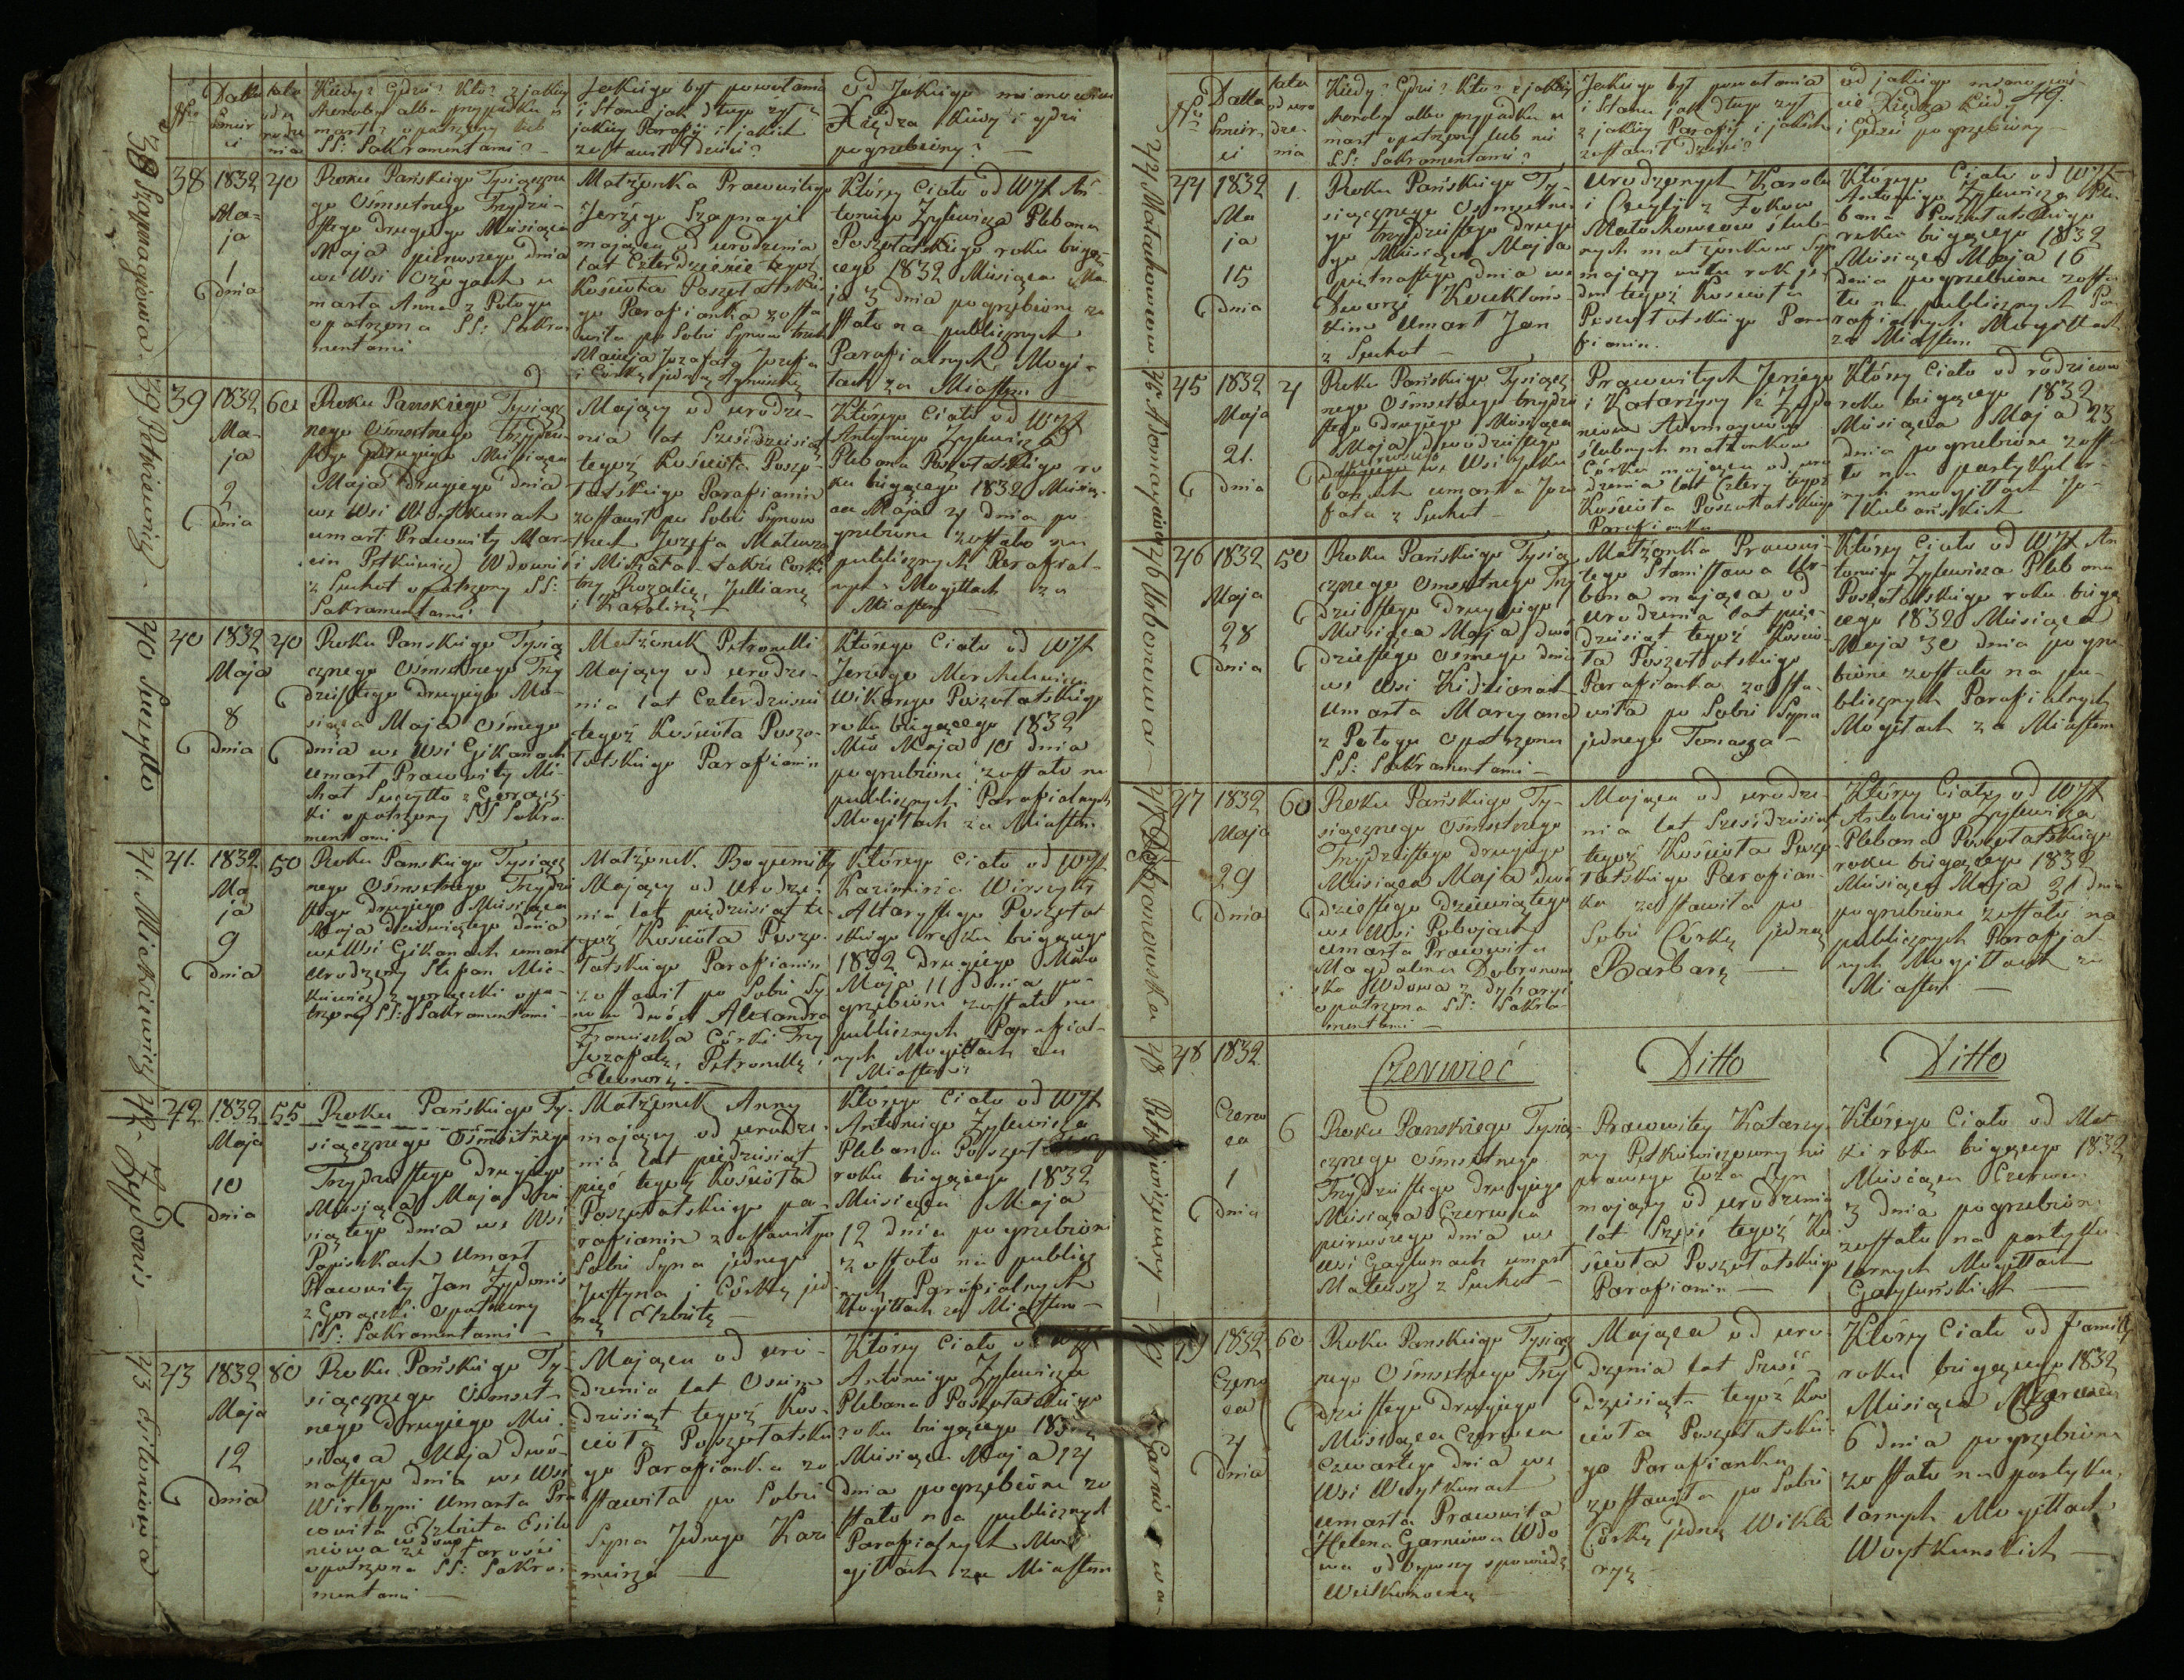 Nro
Datta śmierci
lata od urodzenia
Kiedy? Gdzie? Kto? z jakiey
choroby albo przypadku u
marł? opatrzony lub
SS: Sakramentami?
Jakiego był powołania
i Stanu jak długo żył z
jakiey Parafii i jakich
zostawił Dzieci?
od Jakiego mianowicie
Xiędza Kiedy i gdzie
pogrzebiony?
38 Szapnagiowa
38
1832
Ma-
ja
1
dnia
40
Roku Pańskiego Tysiączne
go Ośmsetnego Trzydzie-
stego drugiego Miesiąca
Maja pierwszego dnia
we Wsi Ożogach u
marła Anna z Połogu
opatrzona SS: Sakra
mentami
Małżonka Prawowitego
Jerzego Szapnagil
mająca od urodzenia
lat Czterdzieście tegoż
Kościoła Poszołatskie
go Parafianka zosta
wiła po Sobie Synów trzech
Macieja Jozafata Jozefa
i Córkę jedną
Którey Ciało od WJX An-
toniego Żylewicza Plebana
Poszołatskiego roku bieżą
cego 1832 Miesiąca Ma
ja 3 dnia pogrzebione zo
stało na publicznych
Parafialnych Mogi-
łach za Miastem
39 Petkiewicz
39
1832
Ma-
ja
2
dnia
60
Roku Pańskiego Tysiącz
nego Ośmsetnego Trzydzie-
stego drugiego Miesiąca
Maja drugiego dnia
we Wsi Woytkunach
umarł Prawowity Mar-
cin Petkiewicz Wdowiec
z Suchot opatrzony SS:
Sakramentami
Mający od urodze-
nia lat Sześćdziesiąt
tegoż Kościoła Poszo-
łatskiego Parafianin
zostawił po Sobie Synow
trzech Jozefa Mateusza
i Michała takoż Corki
trzy Rozalię, Jullianę
i Karolinę
Którego Ciało od WJX
Antoniego Żylewicza
Plebana Poszołatskiego ro
ku bieżącego 1832 Miesią-
ca Maja 4 dnia po
grzebione zostało na
publicznych Parafial-
nych Mogiłłach za
Miastem
40 Suszyłło
40
1832
Maja
8
dnia
40
Roku Pańskiego Tysią
cznego Ośmsetnego Trzy
dziestego drugiego Mie-
siąca Maja Osmego
dnia we Wsi Gikanach
umarł Prawowity Mi-
chał Suszyłło z Gorącz-
ki opatrzony SS Sakra
mentami
Małżonek Petronelli
Mający od urodze-
nia lat Czterdzieści
tegoż Kościoła Poszo-
łatskiego Parafianin
Którego Ciało od WJX
Jerzego
Wikarego Poszołatskiego
roku bieżącego 1832
Mca Maja 10 dnia
pogrzebione zostało na
publicznych Parafialnych
Mogiłach za Miastem
41. Mickiewicz
41.
1832
Ma
ja
9
dnia
50
Roku Pańskiego Tysiącz
nego Ośmsetnego Trzydzie
stego drugiego Miesiąca
Maja dziewiątego dnia
we Wsi Gikanach umarł
Urodzony Stefan Mic-
kiewicz z gorączki opa-
trzony SS: Sakramentami
Małżonek Bogumiły
Mający od Urodze-
nia lat pięćdziesiąt te-
goż Kościoła Poszo-
łatskiego Parafianin
zostawił po Sobie Sy
now dwoch Alexandra
Franciszka Córki Trzy
Jozefatę, Petronellę i
Eleonorę.
Którego Ciało od WJX
Kazimierza
Altarystego Poszołat
skiego roku bieżącego
1832 Drugiego Mca
Maja 11 dnia po-
grzebione zostało na
publicznych Parafial-
nych Mogiłłach za
Miastem
42 Żydonis
42
1832
Maja
10
dnia
55
Roku Pańskiego Ty-
siącznego Ośmsetnego
Trzydziestego Drugiego
Miesiąca Maja dzie
siątego dnia we Wsi
Popiszkach Umarł
Prawowity Jan Żydonis
z Gorączki Opatrzony
SS: Sakramentami
Małżonek Anny
mający od urodze-
nia lat pięćdziesiąt
pięć tegoż Kościoła
Poszołatskiego pa-
rafianin zostawił po
Sobie Syna jednego
Justyna i Córkę jed
ną Elżbietę
Którego Ciało od WJX
Antoniego Żylewicza
Plebana Poszołatskiego
roku bieżącego 1832
Miesiąca Maja
12 dnia pogrzebione
zostało na publicz
nych Parafialnych
Mogiłłach za Miastem
43
1832
Maja
12
dnia
80
Roku Pańskiego Ty-
siącznego Ośmset-
nego drugiego Mie
siąca Maja dwu-
nastego dnia we Wsi
Umarła Pra
wowita Elżbieta
wdowa
ze Starości
opatrzona SS: Sakra-
mentami
Mająca od uro-
dzenia lat Osiem
dziesiąt tegoż Koś-
cioła Poszołatskie
go Parafianka zo
stawiła po Sobie
Syna Jednego Kazi
mierza
Którey Ciało od WJX
Antoniego Żylewicza
Plebana Poszołatskiego
roku bieżącego 1832
Miesiąca Maja 14
dnia pogrzebione zo
stało na publicznych
Parafialnych Mo
giłłach za Miastem
49
Nro
Datta śmierci
lata od urodzenia
Kiedy? Gdzie? Kto? z jakiey
choroby albo przypadku u
marł opatrzony lub nie
SS: Sakramentami?
Jakiego był powołania
i Stanu jak długo żył
z jakiey Parafii i jakich
zostawił dzieci?
od jakiego mianowi
cie Xiędza Kiedy
i Gdzie pogrzebiony
44
1832
Ma
ja
15
dnia
1.
Roku Pańskiego Ty-
siącznego Ośmsetne
go trzydziestego drugie
go Miesiąca Maja
piętnastego dnia we
Dworze
Umarł Jan
z Suchot
Urodzonych Karola
i Cecylii z
ślub-
nych małżonkow Syn
mający wieku rok je-
den tegoż Kościoła
Poszołatskiego Para
fianin.
Którego Ciało od WJX
Antoniego Żylewicza Ple
bana Poszołatskiego
roku bieżącego 1832
Miesiąca Maja 16
dnia pogrzebione zosta
ło na publicznych Pa
rafialnych Mogiłłach
za Miastem
45
1832
Maja
21.
dnia
4
Roku Pańskiego Tysiącz-
nego Ośmsetnego trzydzie
stego drugiego Miesiąca
Maja dwudziestego
pierwszego
we Wsi Jaku
banach umarła Joze
fata z Suchot
Prawowitych Jerzego
i Katarzyny z
ślubnych małżonkow
Córka mająca od uro
dzenia lat Cztery tegoż
Kościoła Poszołatskiego
Parafianka
Którey Ciało od rodzicow
roku bieżącego 1832
Miesiąca Maja 23
dnia pogrzebione zosta
ło na partykular-
nych mogiłłach Ja-
kubańskich
46 Urbonowa
46
1832
Maja
28
dnia
50
Roku Pańskiego Tysią
cznego Ośmsetnego Trzy
dziestego drugiego
Miesiąca Maja dwu
dziestego Osmego dnia
we Wsi
Umarła Maryana
z Połogu Opatrzona
SS: Sakramentami
Małżonka Prawowi-
tego Stanisława Ur-
bona mająca od
urodzenia lat pięć-
dziesiąt tegoż Kościo
ła Poszołatskiego
Parafianka zosta-
wiła po Sobie Syna
jednego Tomasza
Którey Ciało od WJX An
toniego Żylewicza Plebana
Poszołatskiego roku bieżą
cego 1832 Miesiąca
Maja 30 dnia pogrze
bione zostało na pu-
blicznych Parafialnych
Mogiłach za Miastem
47 Dobronowska
47
1832
Maja
29
dnia
60
Roku Pańskiego Ty-
siącznego Ośmsetnego
Trzydziestego drugiego
Miesiąca Maja dwu
dziestego dziewiątego
we Wsi Pobojach
umarła Prawowita
Magdalena Dobronow
ska Wdowa z dyharyi
opatrzona SS: Sakra-
mentami
Mająca od urodze-
nia lat Sześćdziesiąt
tegoż Kościoła Poszo-
łatskiego Parafian-
ka zostawiła po
Sobie Córkę jedną
Barbarę
Którey Ciało od WJX
Antoniego Żylewicza
Plebana Poszołatskiego
roku bieżącego 1832
Miesiąca Maja 31 dnia
pogrzebione zostało na
publicznych Parafial-
nych Mogiłłach za
Miastem
48
1832
Czerw
ca
1
dnia
6
Czerwiec
Ditto
Ditto
Roku Pańskiego Tysią-
cznego Ośmsetnego
Trzydziestego drugiego
Miesiąca Czerwca
pierwszego dnia we
Wsi Gaylunach umarł
Mateusz z Suchot
Prawowitey Katarzy-
ny Petkiewiczowny nie
prawego łoża Syn
mający od urodzenia
lat Sześć tegoż Ko
ścioła Poszołatskiego
Parafianin
Którego Ciało od Mat
ki roku bieżącego 1832
Miesiąca Czerwca
3 dnia pogrzebione
zostało na partyku
larnych Mogiłłach
Gayluńskich
49 Garniowa
49
1832
Czerw
ca
4
dnia
60
Roku Pańskiego Tysiącz
nego Ośmsetnego Trzy
dziestego Drugiego
Miesiąca Czerwca
Czwartego dnia we
Wsi Woytkunach
umarła Prawowita
Helena Garniowa Wdo
wa odbywszy spowiedź
Wielkanocną
Mająca od uro-
dzenia lat Sześć-
dziesiąt tegoż Ko
ścioła Poszołatskie-
go Parafianka
zostawiła po Sobie
Córkę jedną Wikto
ryę
Którey Ciało od Familii
roku bieżącego 1832
Miesiąca Czerwca
6 dnia pogrzebione
zostało na partyku
larnych Mogiłłach
Woytkunskich